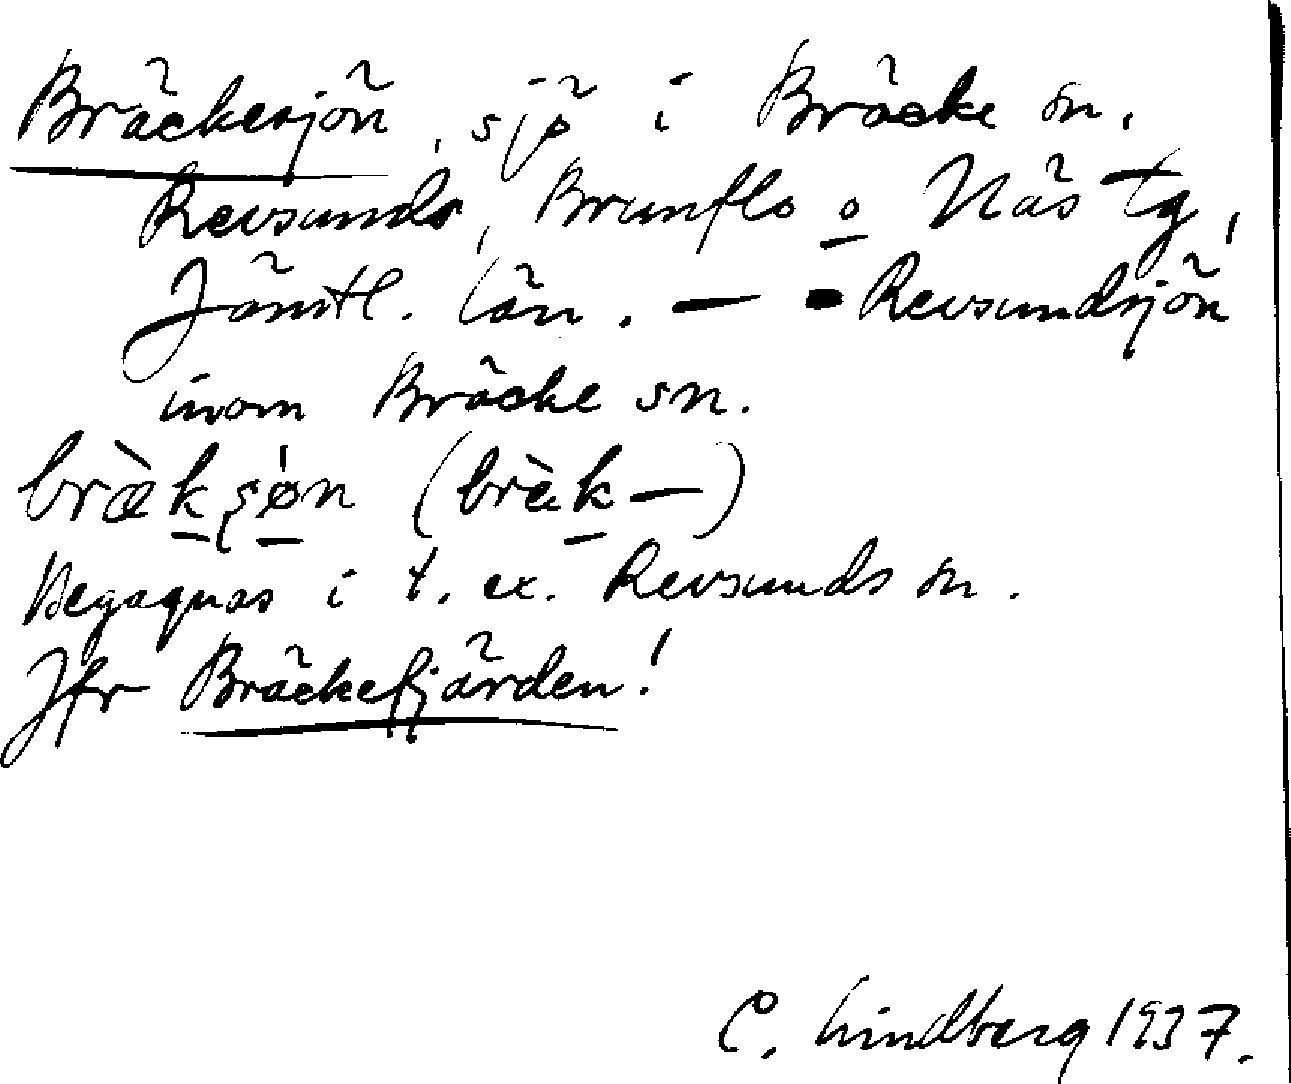 Bräckesjön, sjö i Bräcke sn,
Revsunds, Brunflo o Näs tg,
Jämtl. län. — Revsundsjön
inom Bräcke sn.
bræ̀kʂøn (brɛ̀k—)
Begagnas i t. ex. Revsunds sn.
Jfr Bräckefjärden!
C. Lindberg 1937.